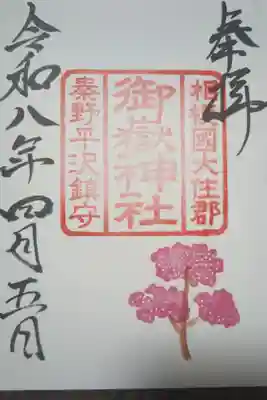 奉拝
相模國大住郡
御嶽神社
秦野平沢鎮守
令和八年四月五日